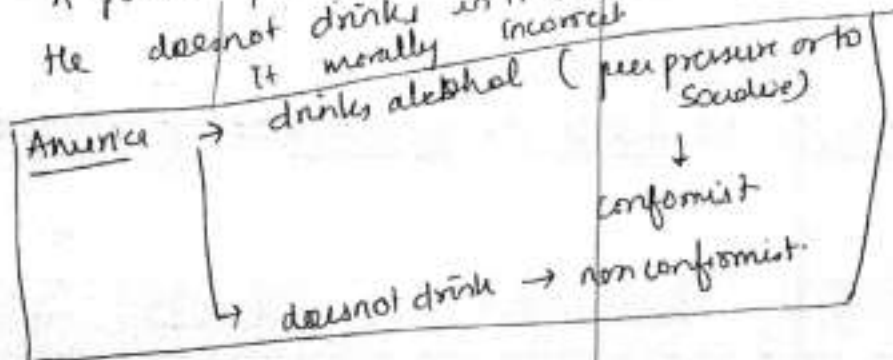 He doesnot drinks in
It morally incorrect
America → drinks alcohol (peer pressure or to
socialise)
↓
conformist
↳ doesnot drink → non conformist.